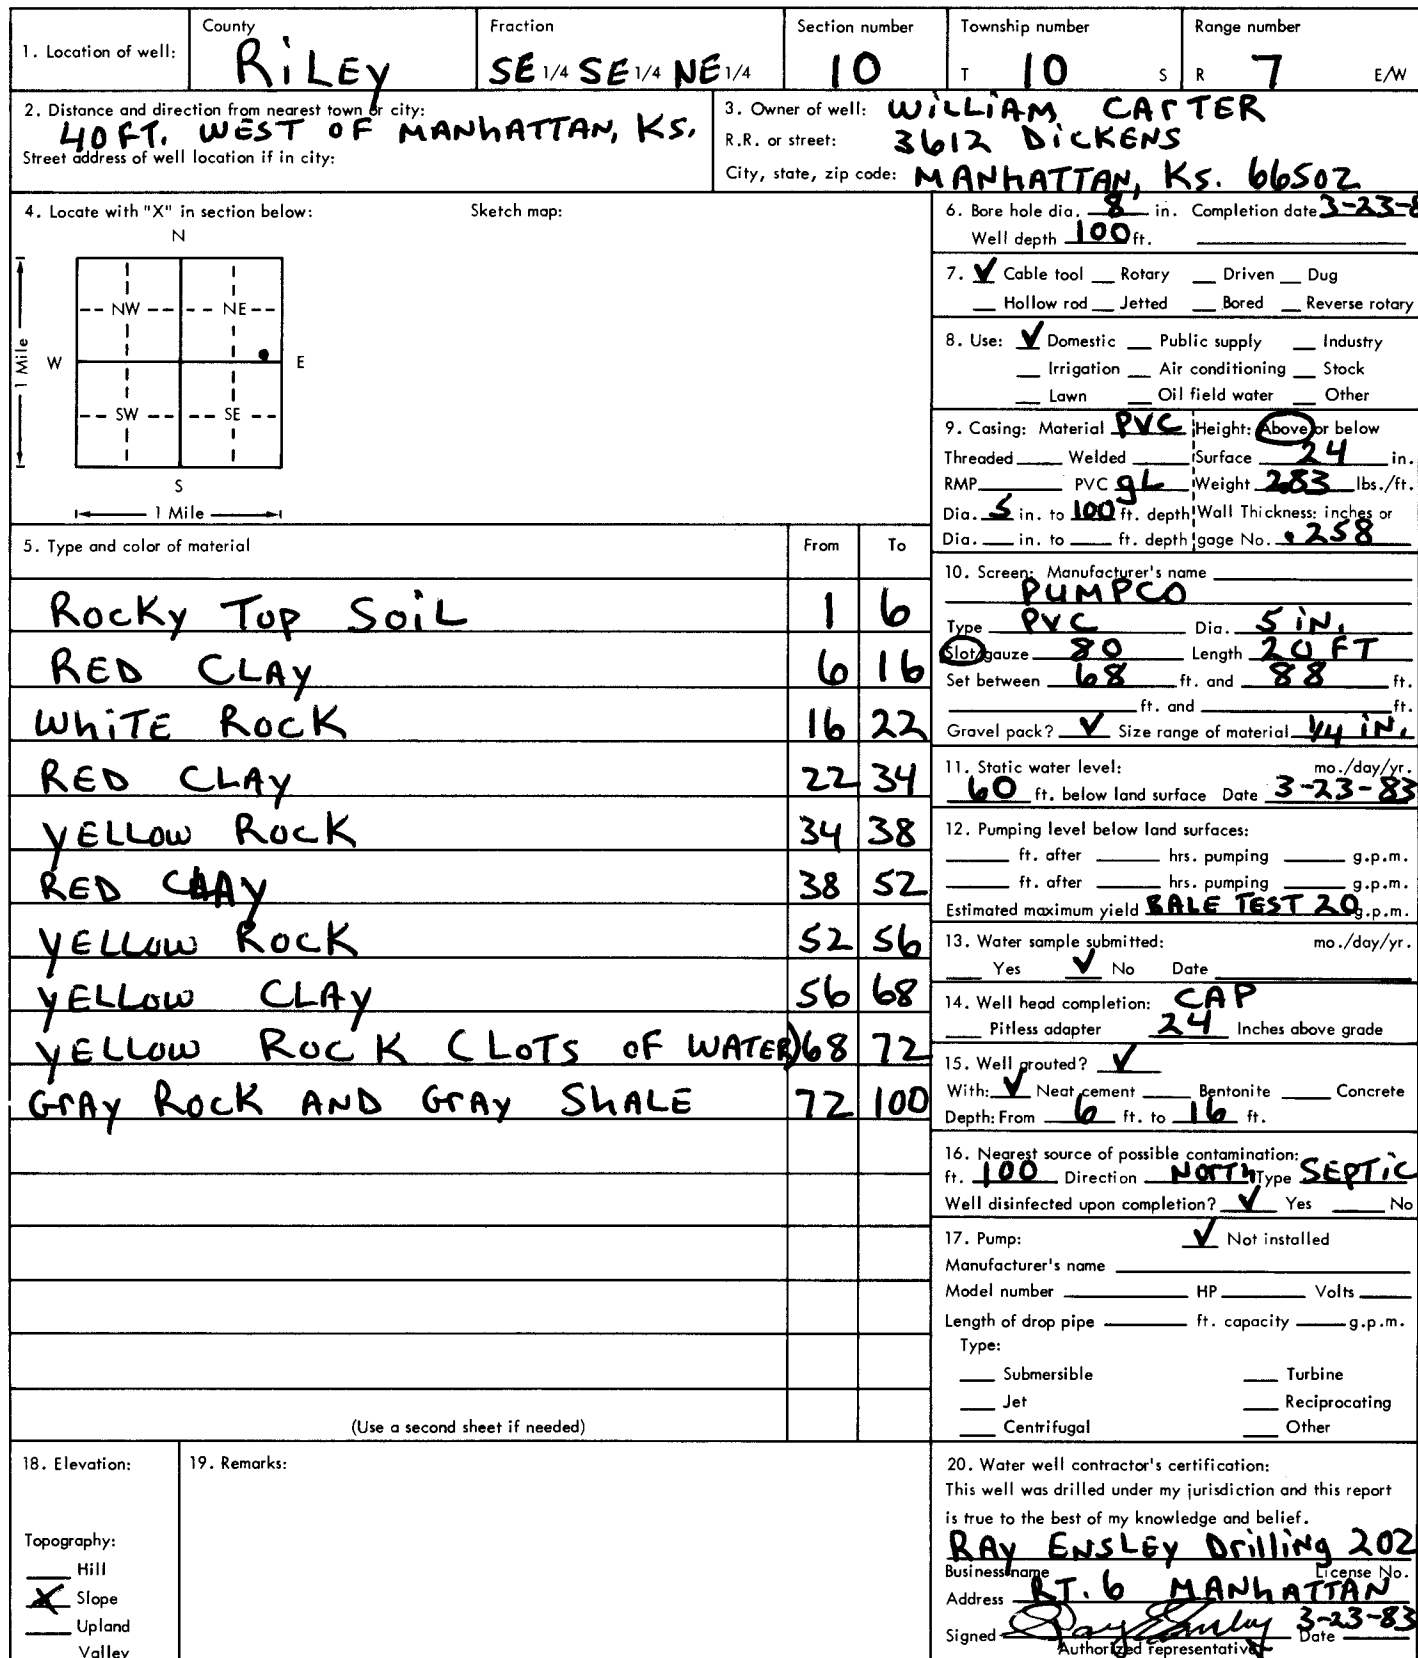 1. Location of well:
County
RiLEy
Fraction
SE 1/4 SE 1/4 NE 1/4
Section number
10
Township number
T 10 S
Range number
R 7 E/W
2. Distance and direction from nearest town or city:
40 FT. WEST OF MANhATTAN, KS.
Street address of well location if in city:
3. Owner of well: WiLLIAM CArTER
R.R. or street: 3612 DiCKENS
City, state, zip code: MANhATTAN, KS. 66502
4. Locate with "X" in section below:
Sketch map:
N
NW NE
W E
SW SE
S
1 Mile
1 Mile
5. Type and color of material From To
ROCKy TOP SOiL 1 6
RED CLAY 6 16
WhiTE ROCK 16 22
RED CLAY 22 34
YELLOW ROCK 34 38
RED CLAY 38 52
YELLOW ROCK 52 56
YELLOW CLAY 56 68
YELLOW ROCK (LOTS OF WATER) 68 72
GrAy ROCK AND GrAy ShALE 72 100
(Use a second sheet if needed)
6. Bore hole dia. 8 in. Completion date 3-23-8
Well depth 100 ft.
7. ✓ Cable tool __ Rotary __ Driven __ Dug
__ Hollow rod __ Jetted __ Bored __ Reverse rotary
8. Use: ✓ Domestic __ Public supply __ Industry
__ Irrigation __ Air conditioning __ Stock
__ Lawn __ Oil field water __ Other
9. Casing: Material PVC Height: Above or below
Threaded ____ Welded ____ Surface 24 in.
RMP ____ PVC gL Weight 2.83 lbs./ft.
Dia. 5 in. to 100 ft. depth Wall Thickness: inches or
Dia. __ in. to __ ft. depth gage No. .258
10. Screen: Manufacturer's name
PUMPCO
Type PVC Dia. 5 iN.
Slot/gauze 80 Length 20 FT
Set between 68 ft. and 88 ft.
____ ft. and ____ ft.
Gravel pack? ✓ Size range of material 1/4 iN.
11. Static water level: mo./day/yr.
60 ft. below land surface Date 3-23-83
12. Pumping level below land surfaces:
____ ft. after ____ hrs. pumping ____ g.p.m.
____ ft. after ____ hrs. pumping ____ g.p.m.
Estimated maximum yield BALE TEST 20 g.p.m.
13. Water sample submitted: mo./day/yr.
__ Yes ✓ No Date ____
14. Well head completion: CAP
__ Pitless adapter 24 Inches above grade
15. Well grouted? ✓
With: ✓ Neat cement __ Bentonite __ Concrete
Depth: From 6 ft. to 16 ft.
16. Nearest source of possible contamination:
ft. 100 Direction NOrTh Type SEPTiC
Well disinfected upon completion? ✓ Yes __ No
17. Pump: ✓ Not installed
Manufacturer's name ____
Model number ____ HP ____ Volts ____
Length of drop pipe ____ ft. capacity ____ g.p.m.
Type:
__ Submersible __ Turbine
__ Jet __ Reciprocating
__ Centrifugal __ Other
18. Elevation:
Topography:
__ Hill
X Slope
__ Upland
Valley
19. Remarks:
20. Water well contractor's certification:
This well was drilled under my jurisdiction and this report
is true to the best of my knowledge and belief.
RAy ENSLEy Drilling 202
Business name License No.
Address RT. 6 MANhATTAN
Signed Ray Ensley Date 3-23-83
Authorized representative